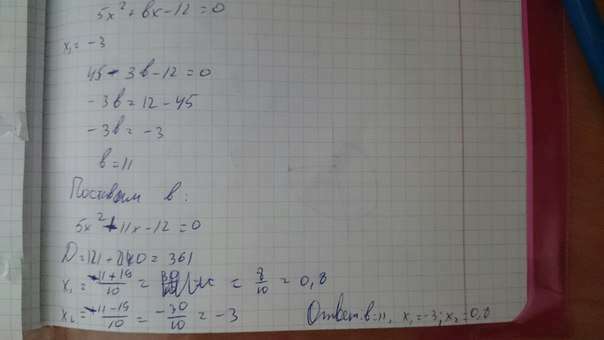 5x² + вx - 12 = 0
x₁ = -3
45 - 3в - 12 = 0
-3в = 12 - 45
-3в = -3
в = 11
Поставим в:
5x² + 11x - 12 = 0
D = 121 - 240 = 361
x₁ = -11+19/10 = = 8/10 = 0,8
x₂ = -11-19/10 = -30/10 = -3
Ответ: в=11, x₁=-3; x₂=0,8